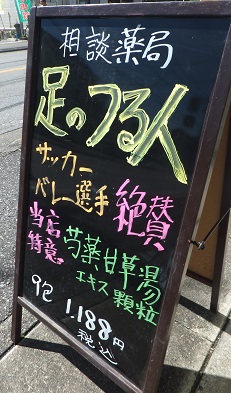 相談薬局
足のつる人
サッカー
バレー選手
絶賛
当店
特意
芍薬甘草湯
エキス顆粒
9包 1.188円
税込